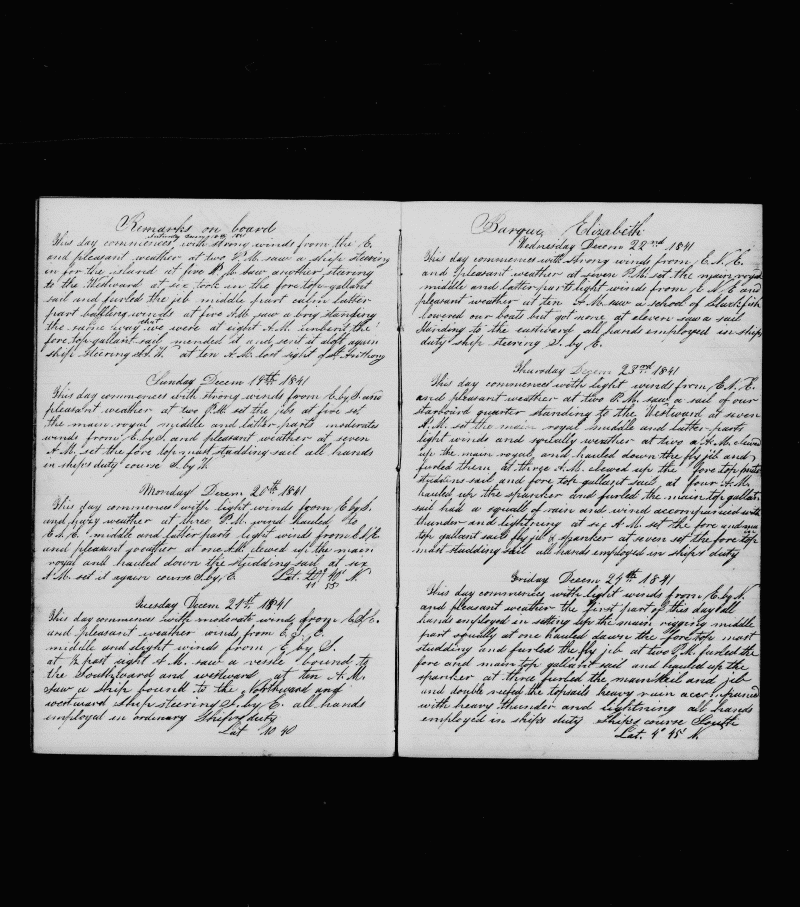 Remarks on board
Saturday Decem 18th
This day commences with strong winds from the E.
and pleasant weather at two P.M. saw a ship steering
in for the island at five P.M. saw another steering
to the Westward at six took in the fore top gallant
sail and furled the jib middle part calm latter
part baffling winds at five A.M. saw a brig standing
the same way we were at eight A.M. unbent the
fore top gallant sail mended it and sent it aloft again
ship steering at ten A.M. lost sight of St Anthony
Sunday Decem 19th 1841
This day commences with strong winds from E. by S. and
pleasant weather at two P.M. set the jib at five set
the main royal middle and latter parts moderate
winds from E. by S. and pleasant weather at seven
A.M. set the fore top mast studding sail all hands
in ships duty course S. by W.
Monday Decem 20th 1841
This day commences with light winds from E by S.
and hazy weather at three P.M. wind hauled to
E. S. E. middle and latter parts light winds from E.S.E.
and pleasant weather at one A.M. clewed up the main
royal and hauled down the studding sail at six
A.M. set it again course S. by E. Lat. N
11 55
Tuesday Decem 21st 1841
This day commences with moderate winds from E.S.E.
and pleasant weather winds from E. S. E.
middle and slight winds from E by S.
at ½ past eight A.M. saw a vessle bound to
the Southward and westward at ten A.M.
saw a ship bound to the Northward and
westward ship steering S. by E. all hands
employed in ordinary Ships duty
Lat 10 40
Barque Elizabeth
Wednesday Decem 22nd 1841
This day commences with strong winds from E.N.E.
and pleasant weather at seven P.M. set the main royal
middle and latter parts light winds from E N E and
pleasant weather at ten A.M. saw a school of Blackfish
lowered our boats but got none at eleven saw a sail
standing to the eastward all hands employed in ships
duty ship steering S. by E.
Thursday Decem 23rd 1841
This day commences with light winds from E.N.E.
and pleasant weather at two P.M. saw a sail of our
starboard quarter standing to the Westward at seven
A.M. set the main royal middle and latter parts
light winds and squally weather at two A.M. clewed
up the main royal and hauled down the fly jib and
furled them at three A.M. clewed up the fore top mast
studdins sail and fore top gallant sail at four A.M.
hauled up the spanker and furled the main top gallant
sail had a squall of rain and wind accompanied with
thunder and lightning at six A.M. set the fore and main
top gallant sails fly jib & spanker at seven set the fore top
mast studding sail all hands employed in ships duty
Friday Decem 24th 1841
This day commences with light winds from E. by N.
and pleasant weather the first part of this day all
hands employed in setting up the main rigging middle
part squally at one hauled down the fore top mast
studding and furled the fly jib at two P.M. furled the
fore and main top gallant sail and hauled up the
spanker at three furled the mainsail and jib
and double reefed the topsails heavy rain accompanied
with heavy thunder and lightning all hands
employed in ships duty Ships course South
Lat. 4° 45 N.